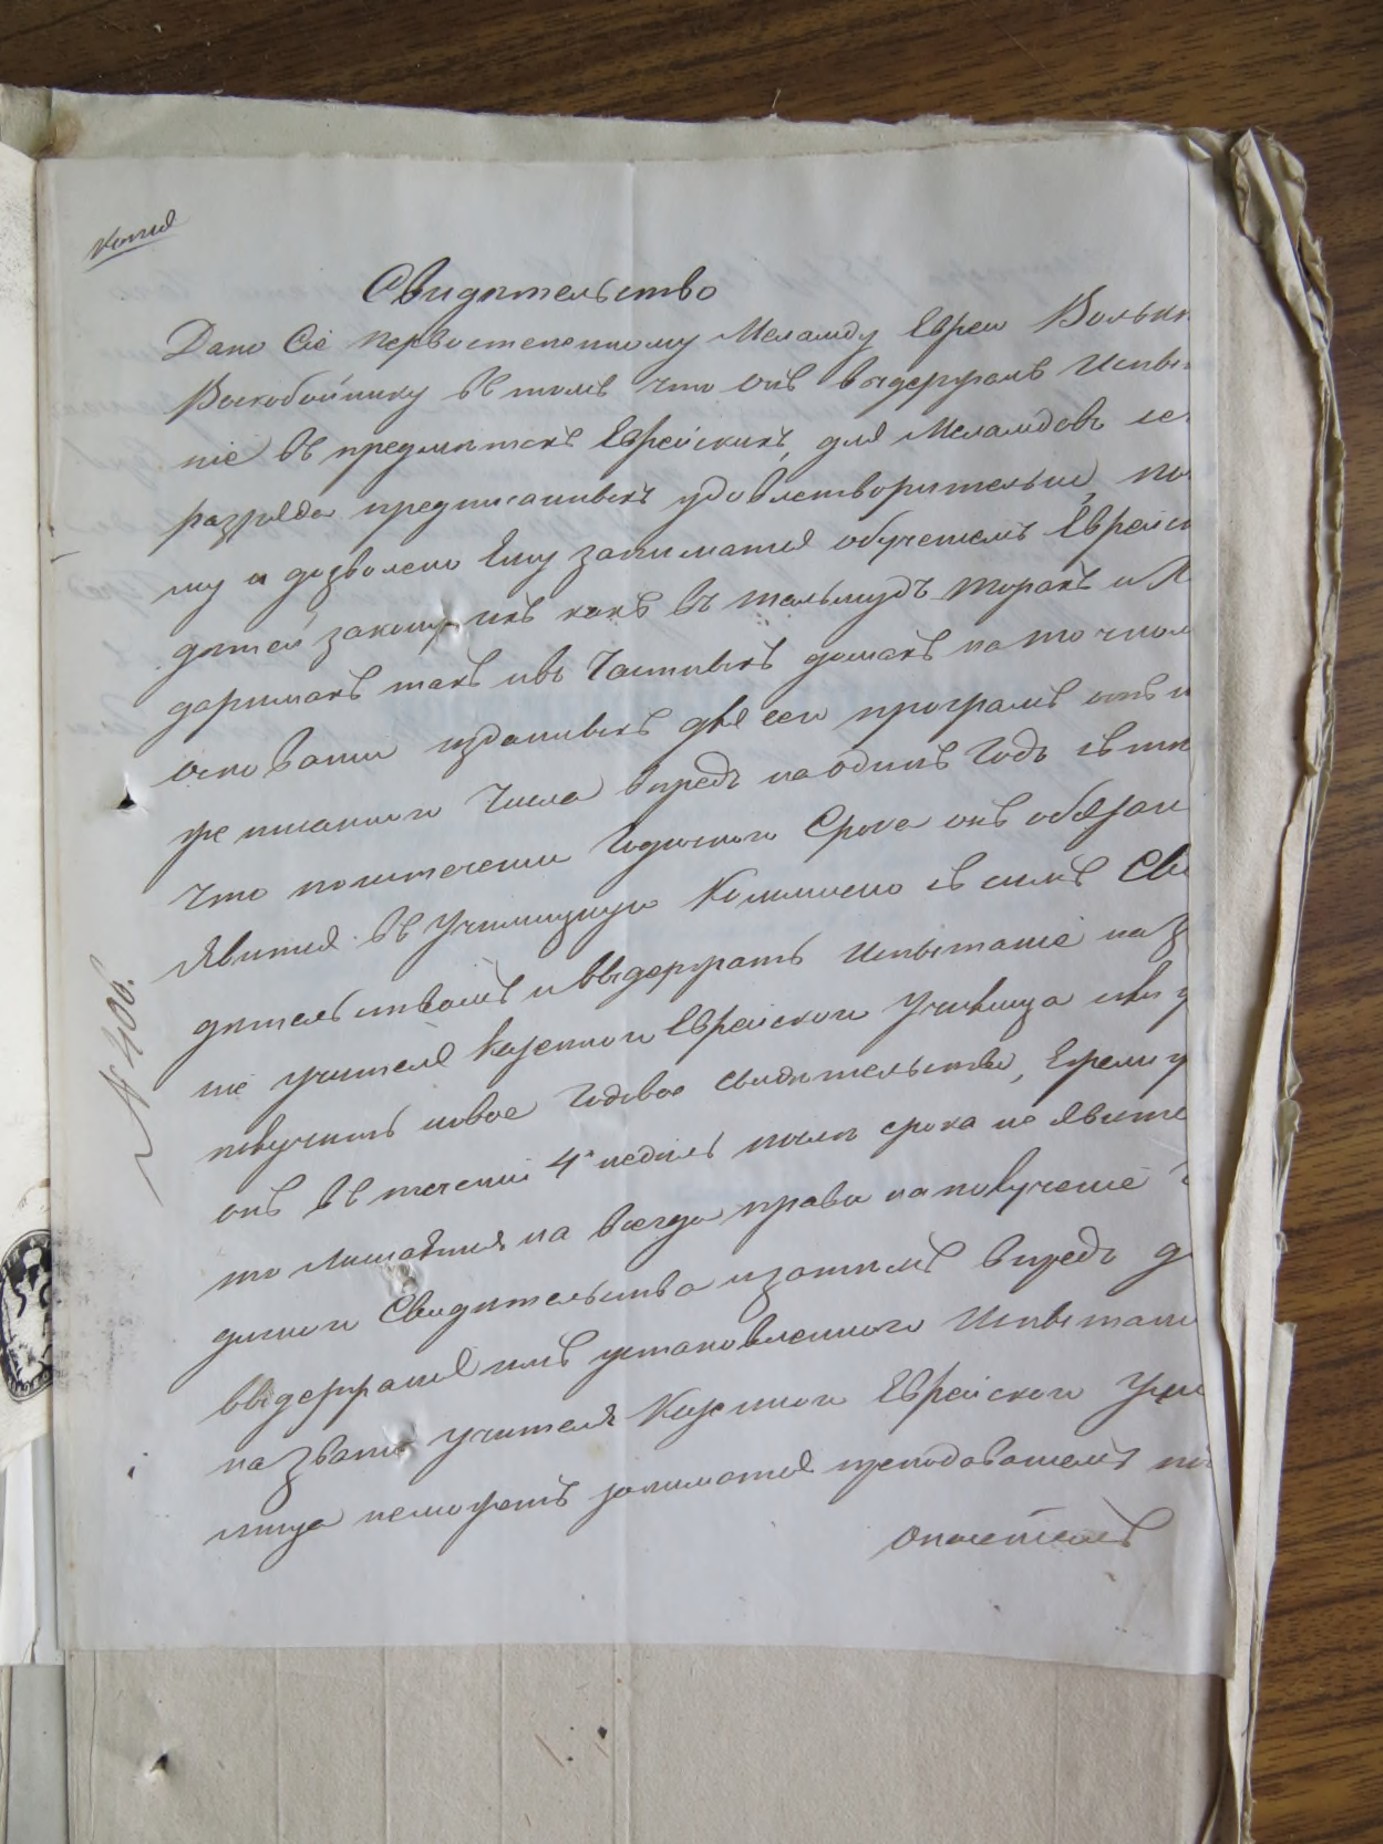 Копия
Свидетельство
Дано Сіе первостепенному Меламду Еврею Вольк
Воскобойнику въ томъ что онъ выдержалъ Испы
ніе въ предметахъ Еврейскихъ, для Меламдовъ
разряда предписанныхъ удовлетворительно, по
му и дозволено Ему заниматся обученіемъ Еврейс
детей закону ихъ какъ въ тальмудъ торахъ и
даримахъ такъ ивъ Частныхъ домахъ на точном
основании изданныхъ для сего програмъ отъ н
же писанного Числа впредь наодинъ Годъ съ тѣ
что поистечении Годичного Срока онъ обязан
явится въ Училищную Коммисію съ симъ Сви
детельствомъ и выдержать Испытаніе на з
ніе учителя Казенного Еврейского Училища или
получить новое Годовое Свидетельство, Ежели
онъ въ течении 4х недель после срока не явитс
то лишается на всегда права на получение
дичного Свидетельства изатемъ впредь д
выдержания имъ установленного Испытани
на звание учителя Казенного Еврейского Учи
лища неможетъ заниматся преподаваниемъ
опасениемъ
№ 406.